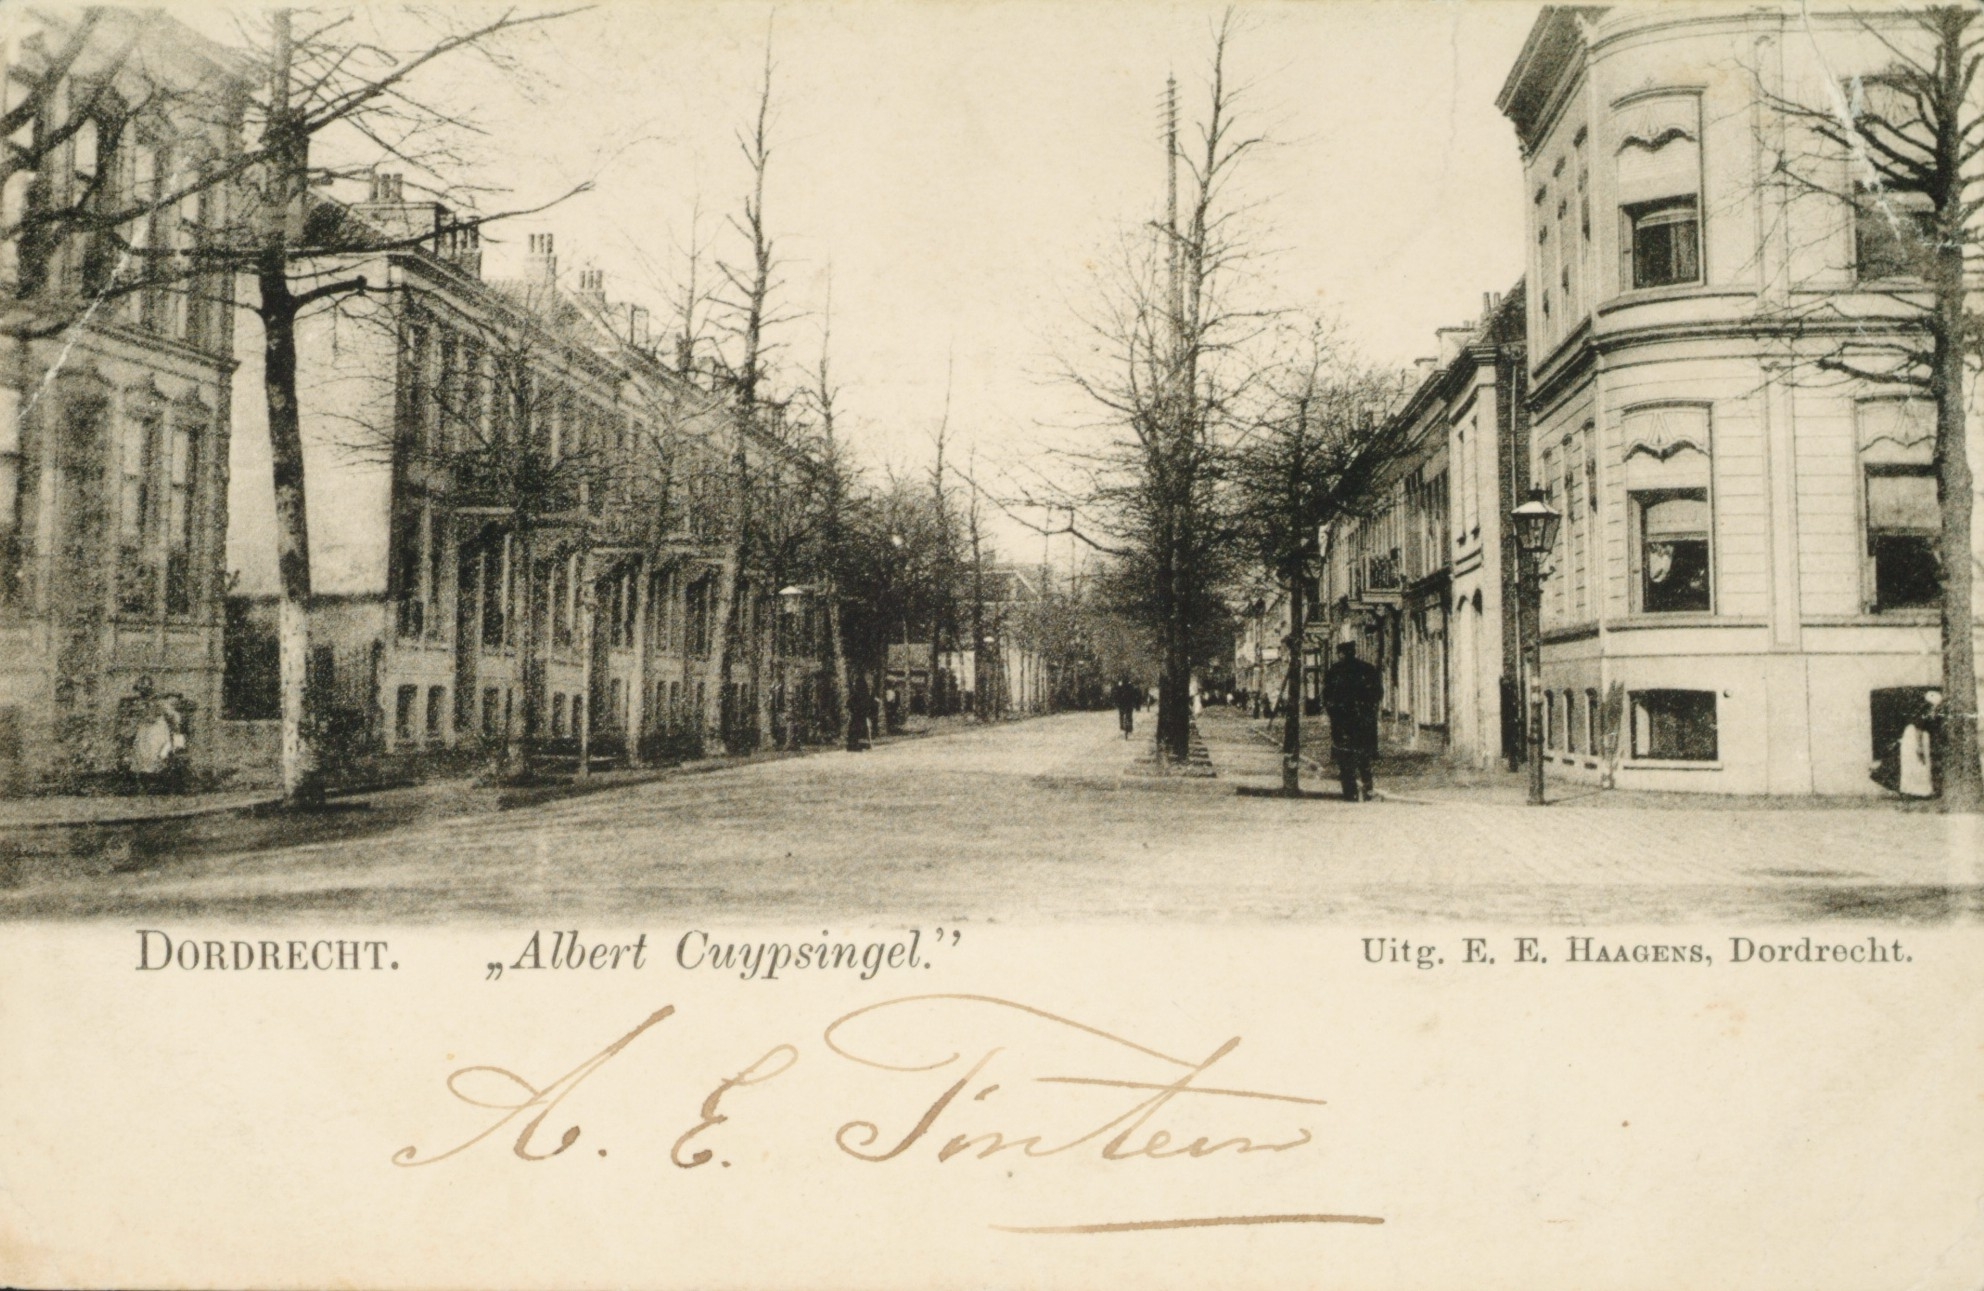 DORDRECHT. „Albert Cuypsingel.” Uitg. E. E. HAAGENS, Dordrecht.
A. E. Tintein